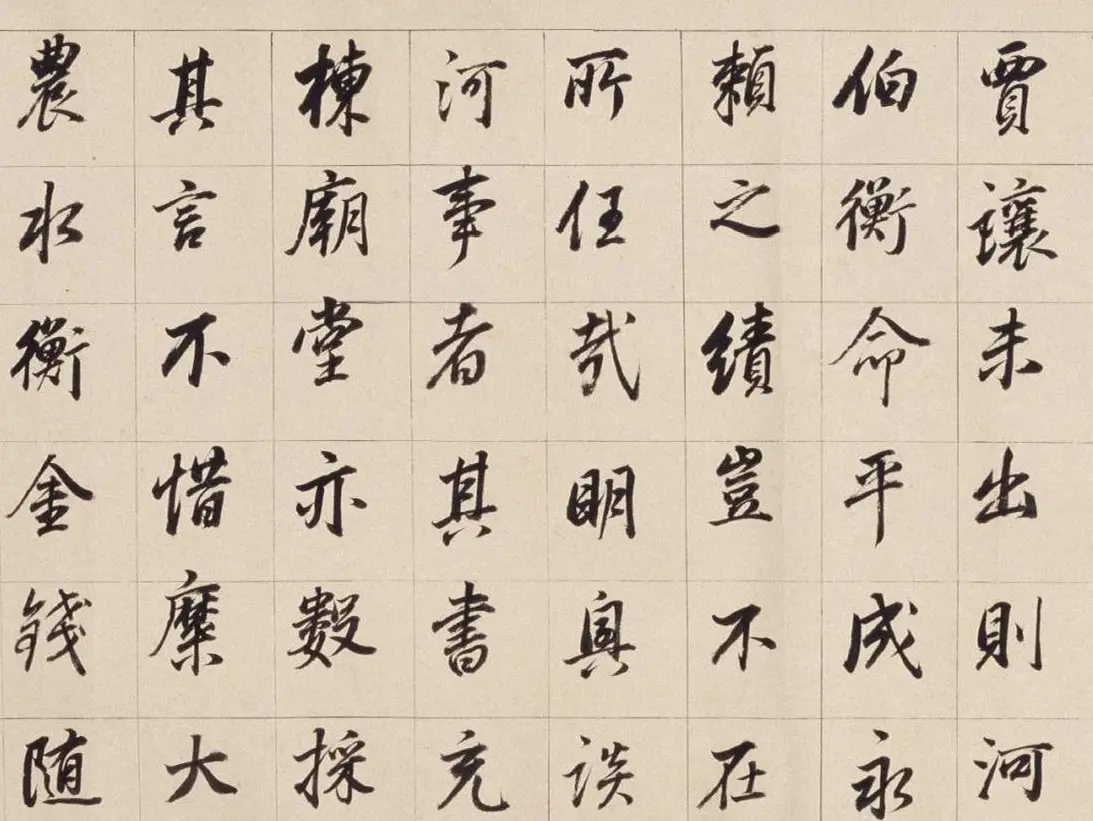 賈讓未出則河
伯衡命平成永
賴之績豈不在
所任哉明與談
河事者其書充
棟廟堂亦數採
其言不惜縻大
農水衡金錢随